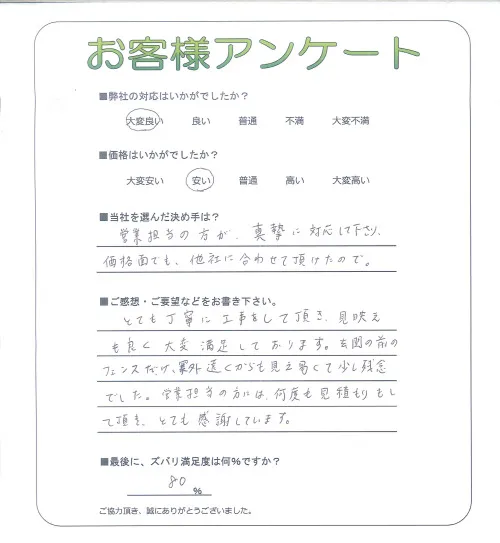 お客様アンケート
■弊社の対応はいかがでしたか？
大変良い 良い 普通 不満 大変不満
■価格はいかがでしたか？
大変安い 安い 普通 高い 大変高い
■当社を選んだ決め手は？
営業担当の方が、真摯に対応して下さり、
価格面でも、他社に合わせて頂けたので。
■ご感想・ご要望などをお書き下さい。
とても丁寧に工事をして頂き、見映え
も良く大変満足しております。玄関の前の
フェンスだけ、案外遠くからも見え易くて少し残念
でした。営業担当の方には、何度も見積もりもし
て頂き、とても感謝しています。
■最後に、ズバリ満足度は何%ですか？
80 %
ご協力頂き、誠にありがとうございました。